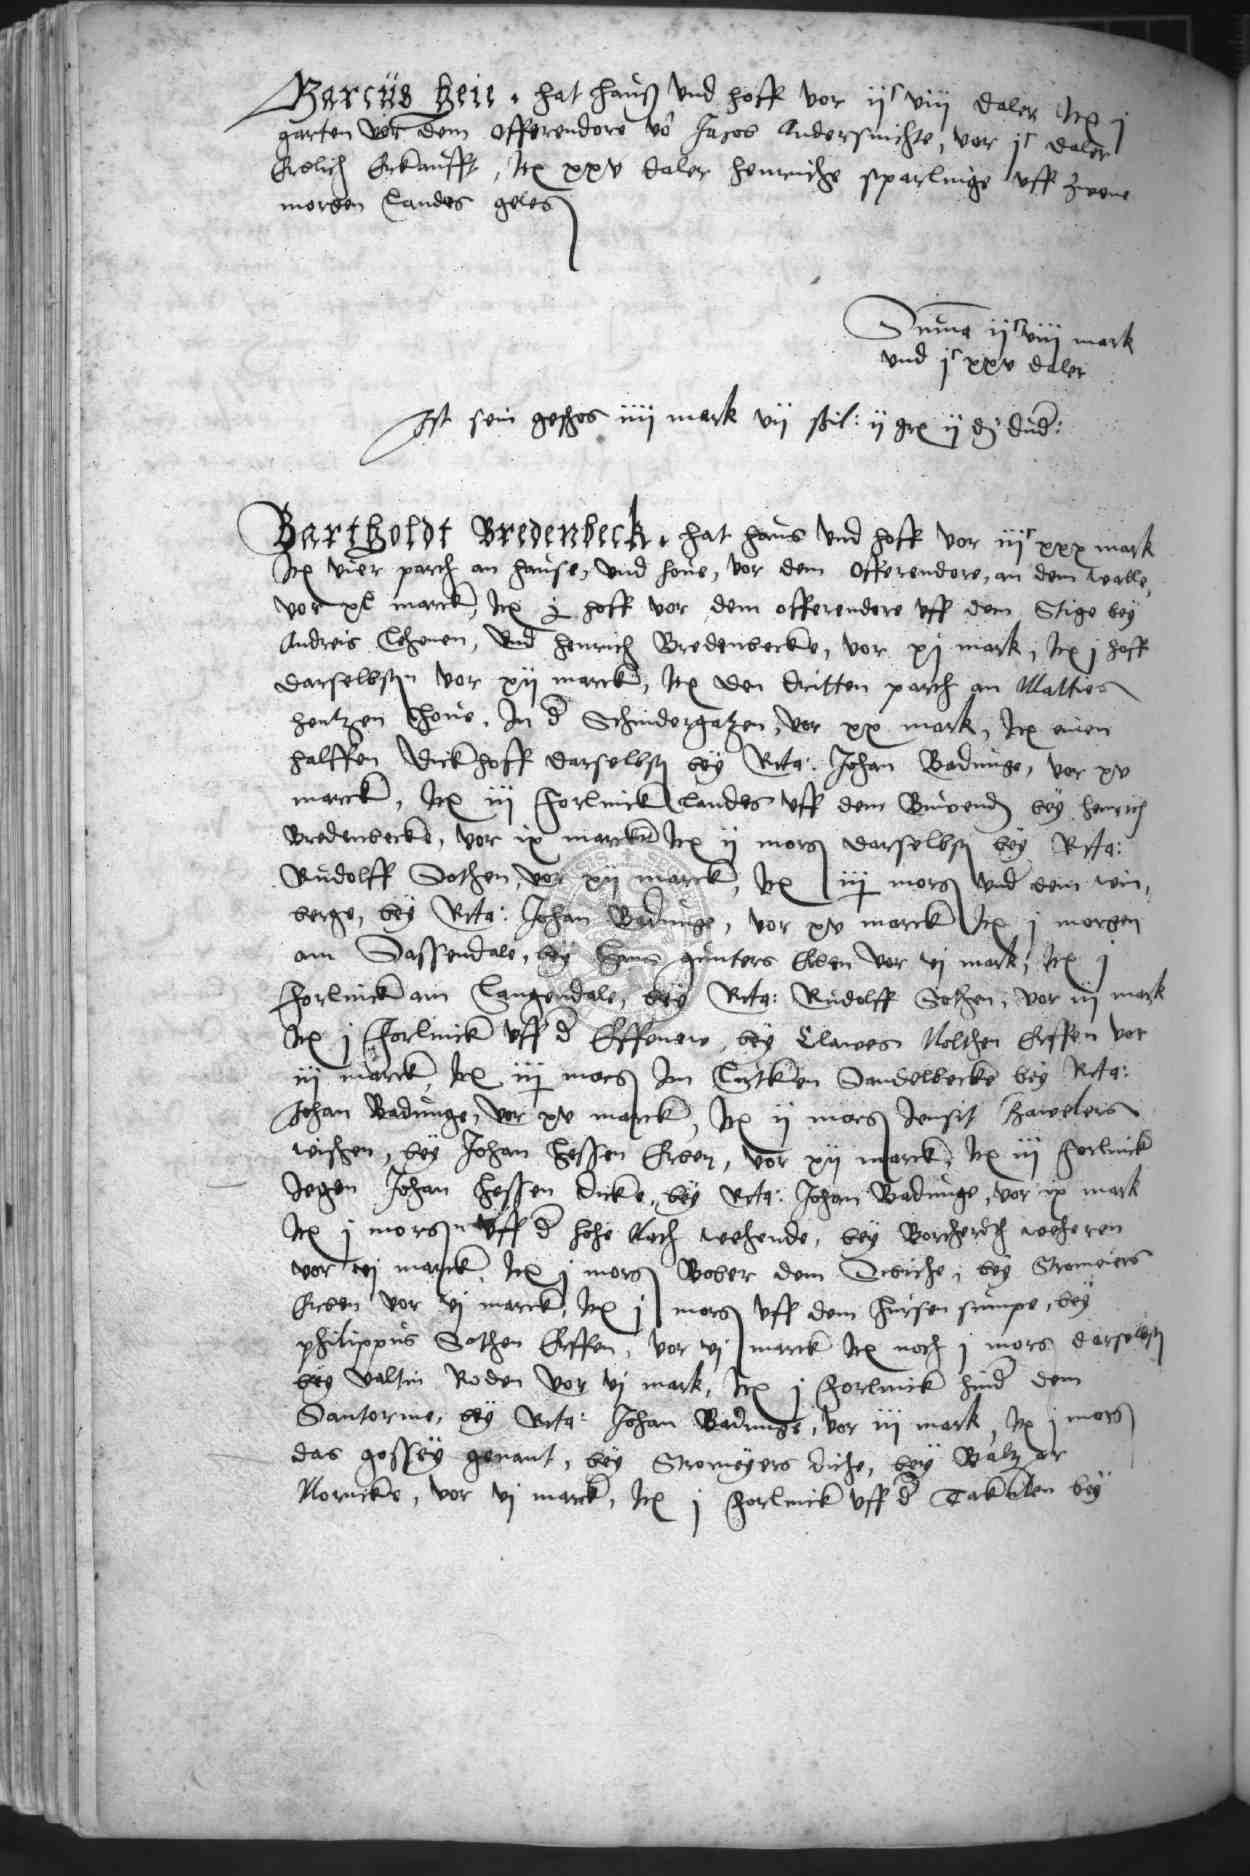 Marcus Heie. hat hauß vnd hoff vor ijᶜ viij daler Itē j
garten vor dem Offerendore vō Jacob vor jᶜ daler
Erblich Erkaufft, Itē xxv daler Henriche Sparlinge vff zwene
morgen Landes geleg
Suma ijᶜ viij mark
vnd jᶜ xxv daler
Ist sein geschos iiij mark vij schil: ij gr ij đ
Bartholdt Bredenbeck. hat haus vnd hoff vor iijᶜ xxx mark
Itē vier parth an hause, vnd houe, vor dem Offerendore, an dem walle,
vor xl marck, Itē hoff vor dem offerendore vff dem Stige bey
Andreis vnd Henrich Bredenbecke, vor xj mark, Itē j hoff
darselbst vor xij marck, Itē den dritten parth an Matties
Hentzen houe, In đ Schindergatzen, vor xx mark, Itē einen
halffen Dickhoff darselbst bey Rta: Johan Badunge, vor xv
marck, Itē iij Forlinck Landes vff dem bey Henrich
Bredenbecke, vor ix marck Itē ij morg darselbst bey Rta:
Rudolff Sothen, vor xij marck, Itē iij morg vnd dem win,
berge, bey Rta: Johan Badunge, vor xv marck Itē j morgen
am Dassendale, bey Hans Gunters Erben vor vj mark, Itē j
Forlinck am Langendale, bey Rta: Rudolff Sothen, vor iij mark
Itē j Forlinck vff đ bey Clawes Nolthen Erffen vor
iij marck, Itē iij morg Im Lutken Sandelbecke bey Rta:
Johan Badunge, vor xv marck, Itē ij morg Jensit Hawelers
wischen, bey Johan Hessen Erben, vor xij marck, Itē iij Forlinck
Jegen Johan Hessen Dicke, bey Rta: Johan Badunge, vor ix mark
Itē j morgn vff đ hohe Nach wehende, bey Borcherdt weheren
vor vj marck, Itē j morg Bober dem bey Stromeiers
Erben vor vj marck, Itē j morg vff dem bey
Philippus Sothen Erffen, vor vj marck Itē noch j morg darselbst
bey Valtin Roden vor vj mark, Itē j Forlinck hind dem
Santorme, bey Rta: Johan Badunge, vor iij mark, Itē j morg
das gossey genant, bey Stromeyers diche, bey Baltzar
Nornicke, vor vj marck, Itē j Forlinck vff đ bey